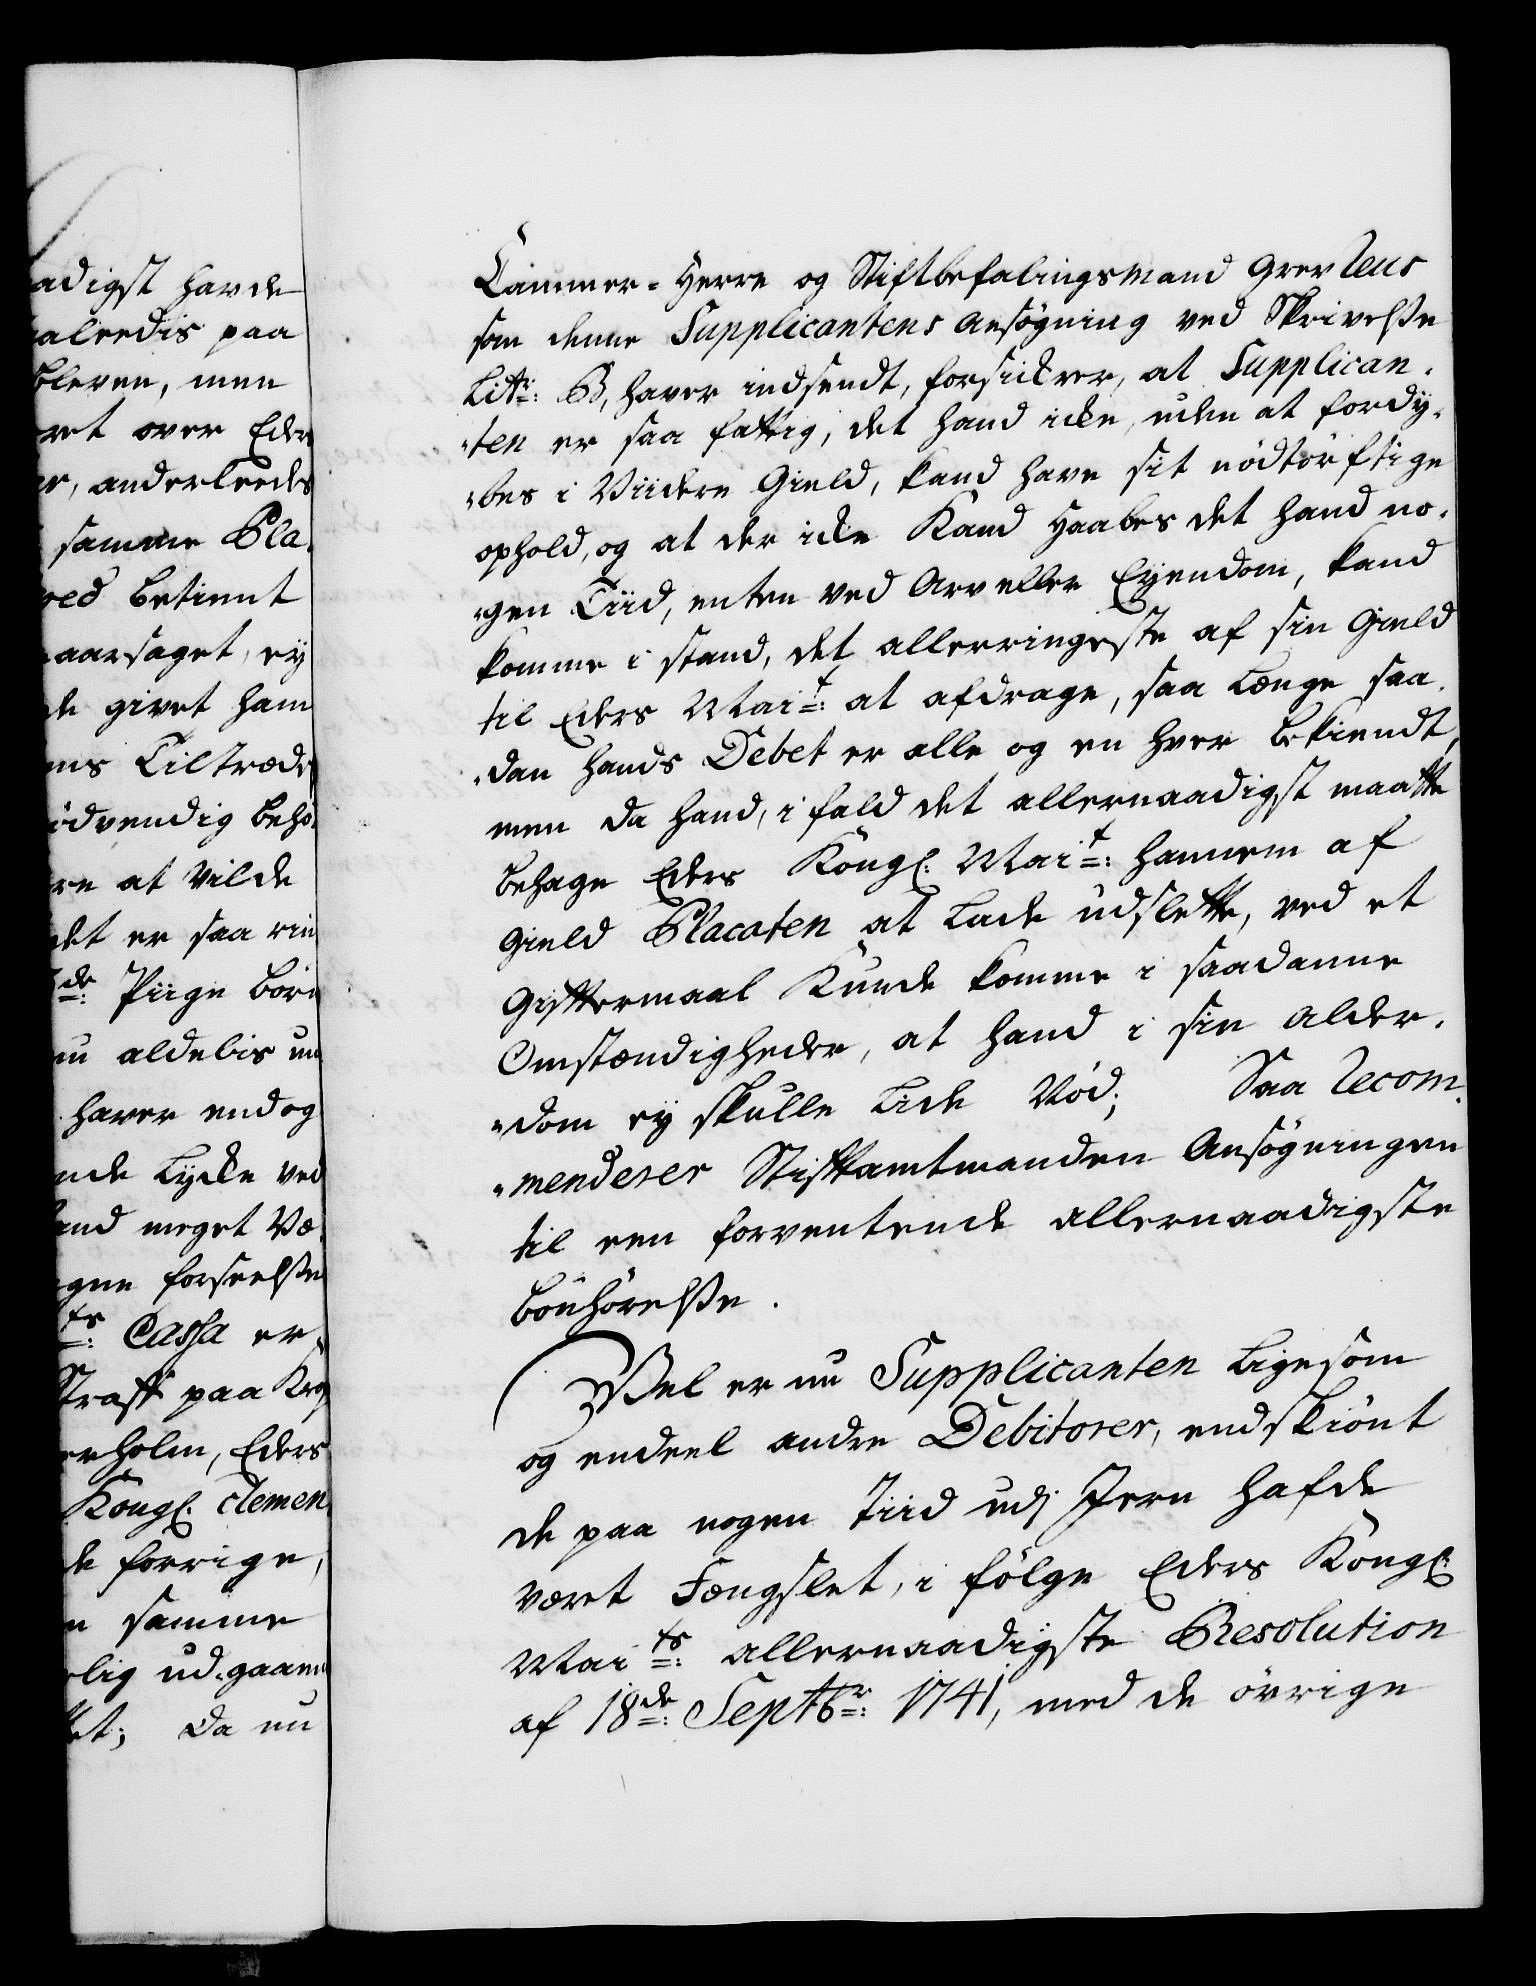 adigst havde
aleedis paa
bleven, men
ret over Eders
er, anderleedes
samme Pla-
red betient
aarsaget, ey
de givet ham
ns Tiltræde
ödvendig behö-
re at vilde
det er saa rin
de: Piige börn
nu aldelis un
haver endog
nde Lycke ved
and meget Væ-
gne forseelsse
ts: Cassa er-
Straff paa Kro
erholm, Eders
Kongl. clemen
de forrige,
n samme
elig ud-gaaen
et; Da nu
Cammer-Herre og Stiftbefalingsmand Grev Reus
som denne Supplicantens Ansögning ved Skrivelsse
Litr: B, haver indsendt, forsickrer, at Supplican-
-ten er saa fattig, det hand icke, uden at fordy-
-bes i Viidere Gield, kand have sit nödtörftige
ophold, og at der icke Kand Haabes det hand no-
-gen Tiid, enten ved Arv eller Eyendom, kand
komme i stand, det allerringeste af sin Gield
til Eders Mait: at afdrage, saa Længe saa-
-dan hands Debet er alle og en hver bekiendt,
men da hand, i fald det allernaadigst maatte
behage Eders Kongl. Mait: hannem af
Gield Placaten at Lade udslette, ved et
Gifftermaal Kunde komme i saadanne
Omstændigheder, at hand i sin Alder-
-dom ey skulle Lide Nöd; Saa Recom-
-menderer Stifftamtmanden Ansögningen
til een forventende allernaadigste
bönhörelsse.
Vel er nu Supplicanten Ligesom
og endeel andre Debitorer, endskiönt
de paa nogen Tiid udj Jern hafde
været Fængslet, i fölge Eders Kongl:
Maits: allernaadigste Resolution
af 18de: Septbr: 1741, med de övrige